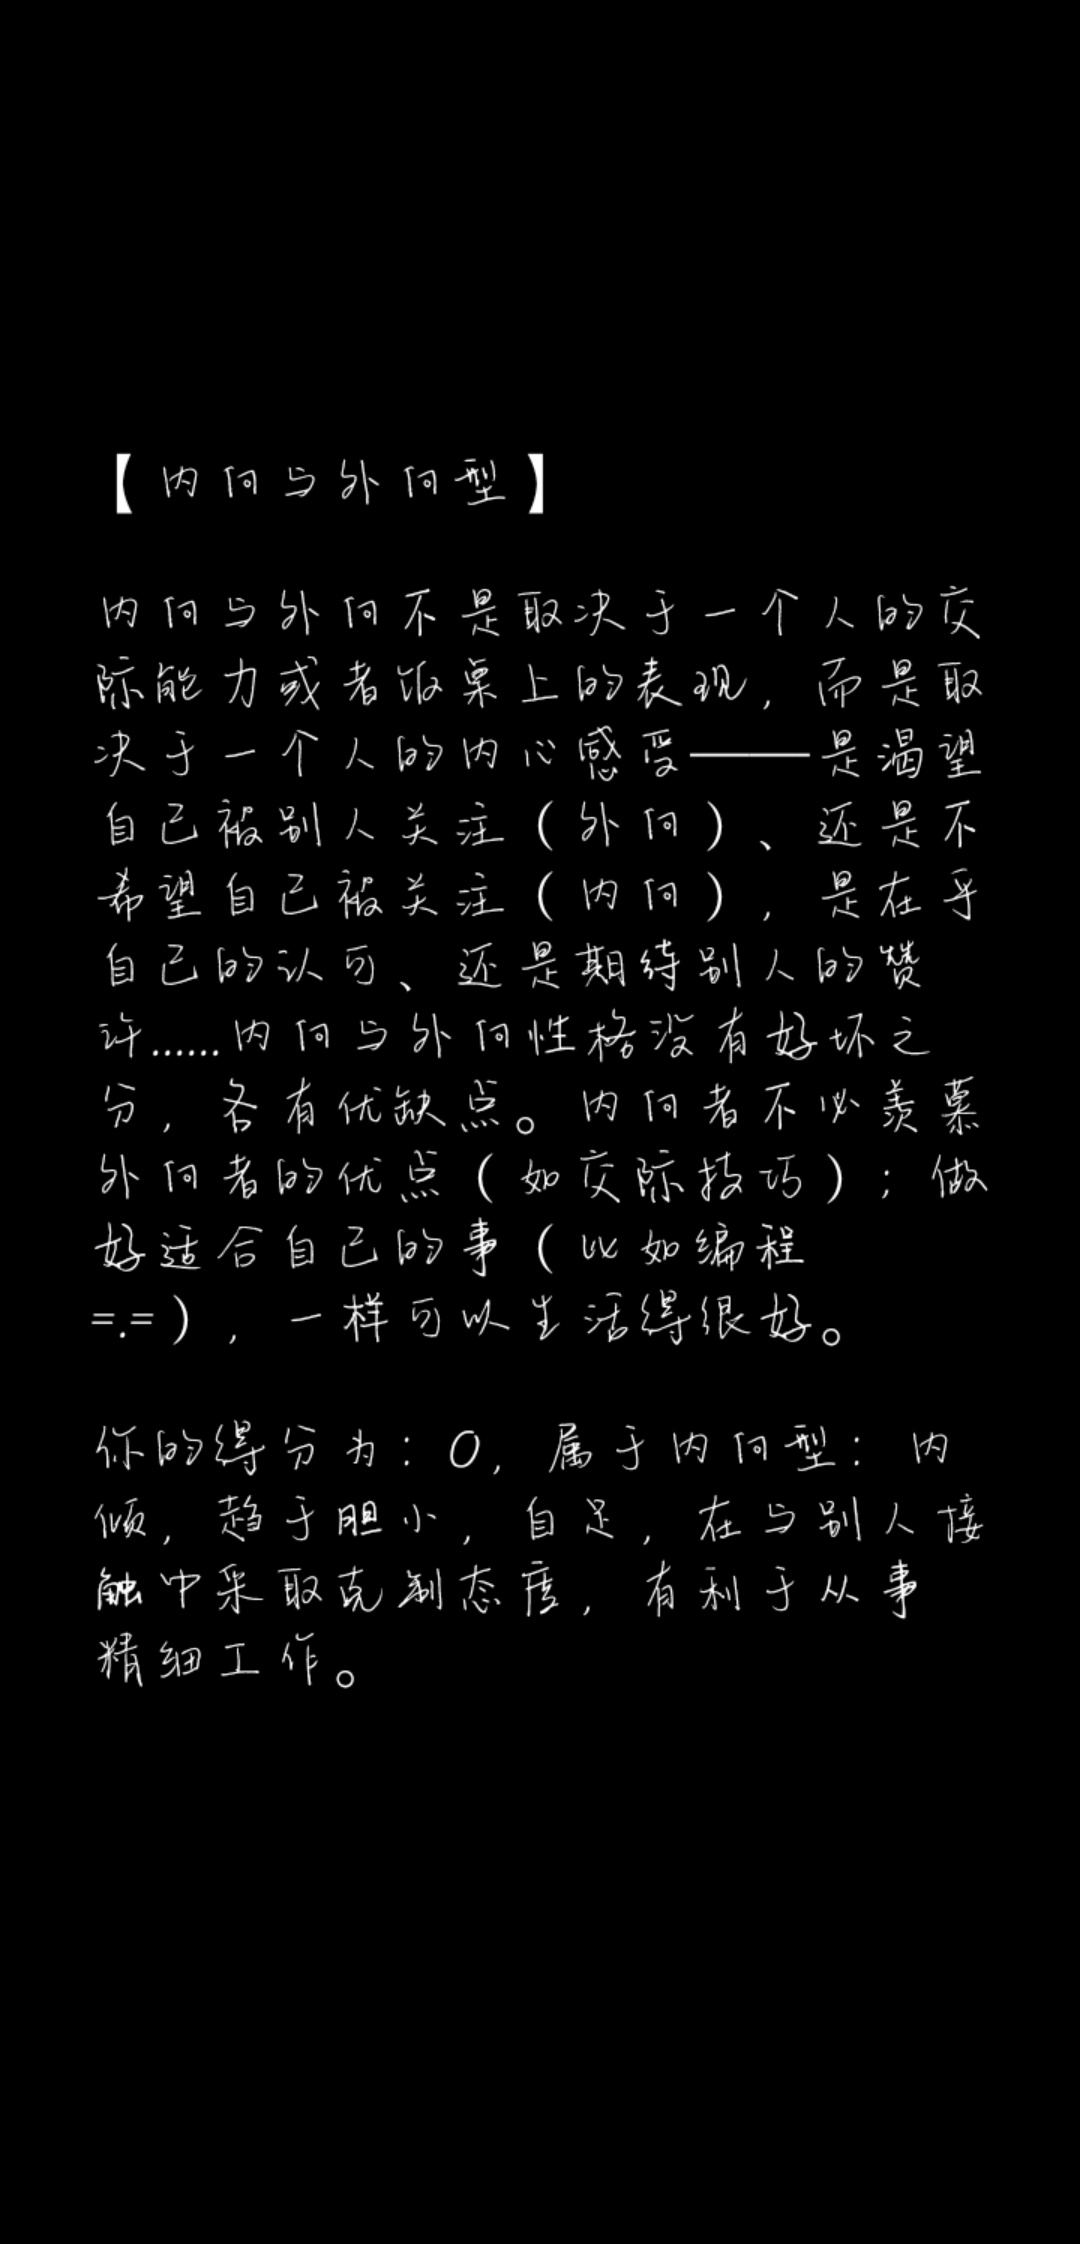 【内向与外向型】
内向与外向不是取决于一个人的交
际能力或者饭桌上的表现，而是取
决于一个人的内心感受——是渴望
自己被别人关注（外向）、还是不
希望自己被关注（内向），是在乎
自己的认可、还是期待别人的赞
许......内向与外向性格没有好坏之
分，各有优缺点。内向者不必羡慕
外向者的优点（如交际技巧）；做
好适合自己的事（比如编程
=.=），一样可以生活得很好。
你的得分为：0，属于内向型：内
倾，趋于胆小，自足，在与别人接
触中采取克制态度，有利于从事
精细工作。